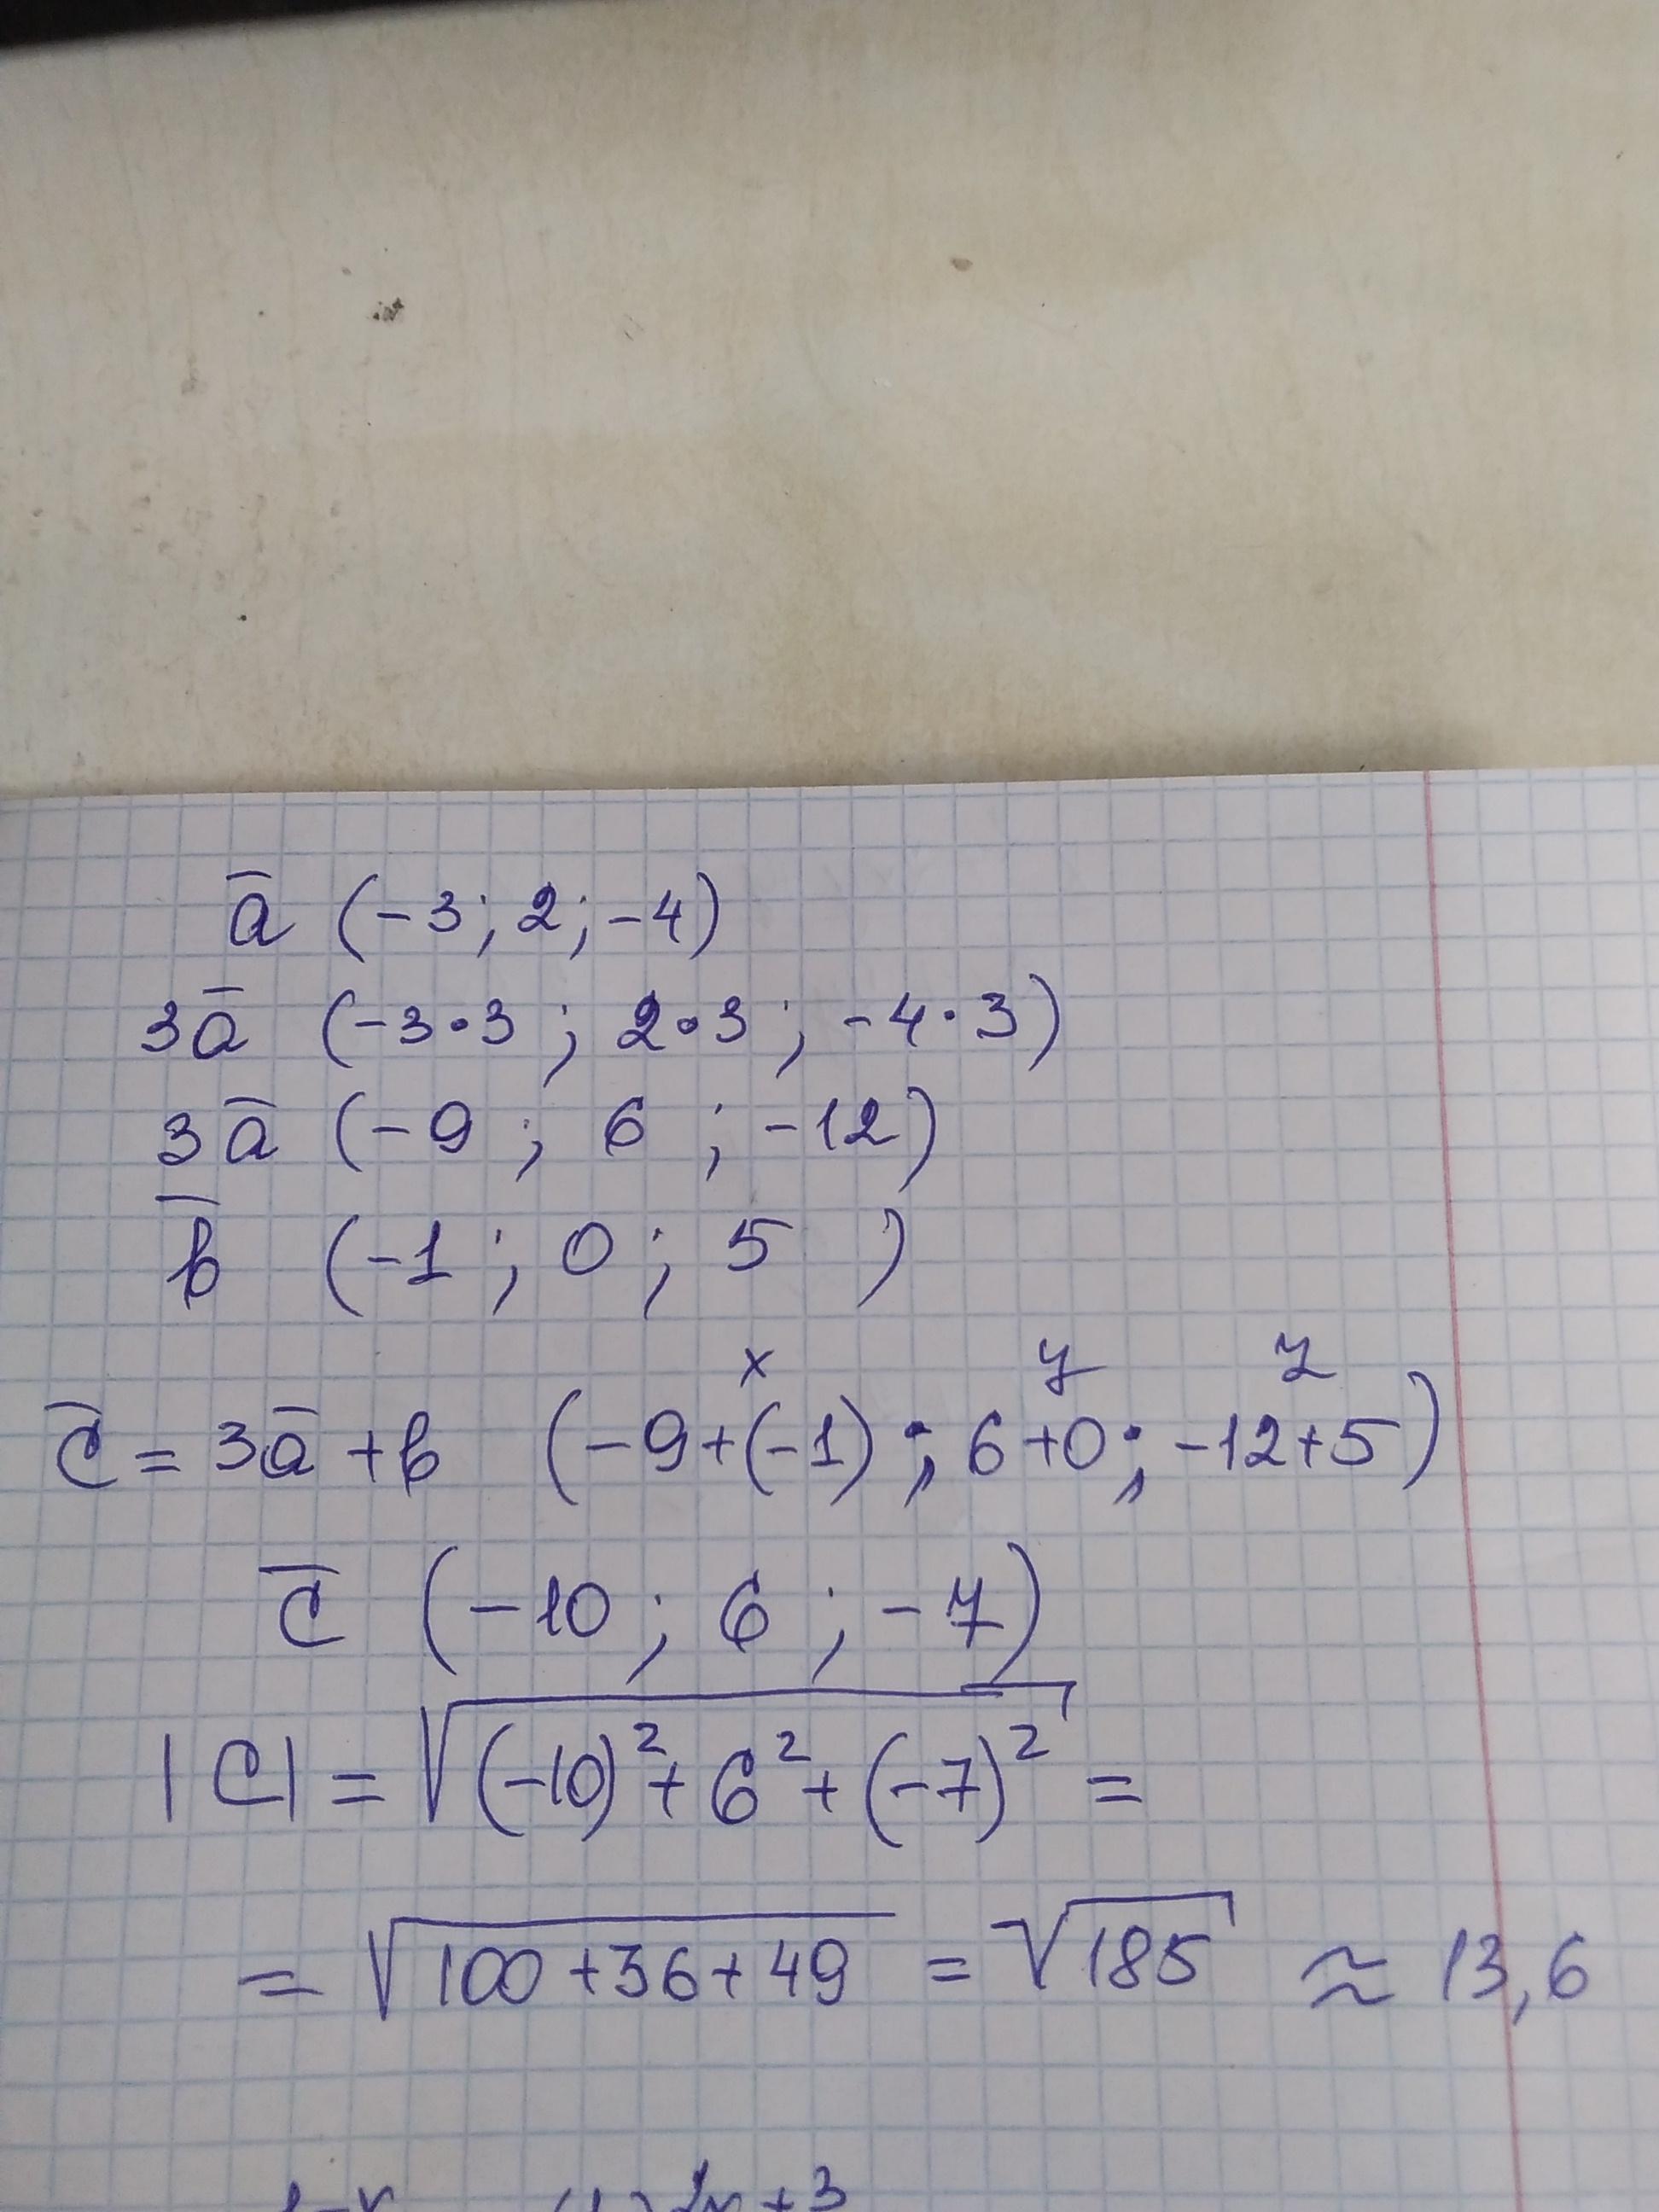 a̅ (-3; 2; -4)
3a̅ (-3·3 ; 2·3 ; -4·3)
3a̅ (-9 ; 6 ; -12)
b̅ (-1 ; 0 ; 5 )
x y z
c̅ = 3a̅ + b (-9+(-1) ; 6+0 ; -12+5)
c̅ (-10 ; 6 ; -7)
|C| = √((-10)² + 6² + (-7)²) =
= √(100+36+49) = √185 ≈ 13,6